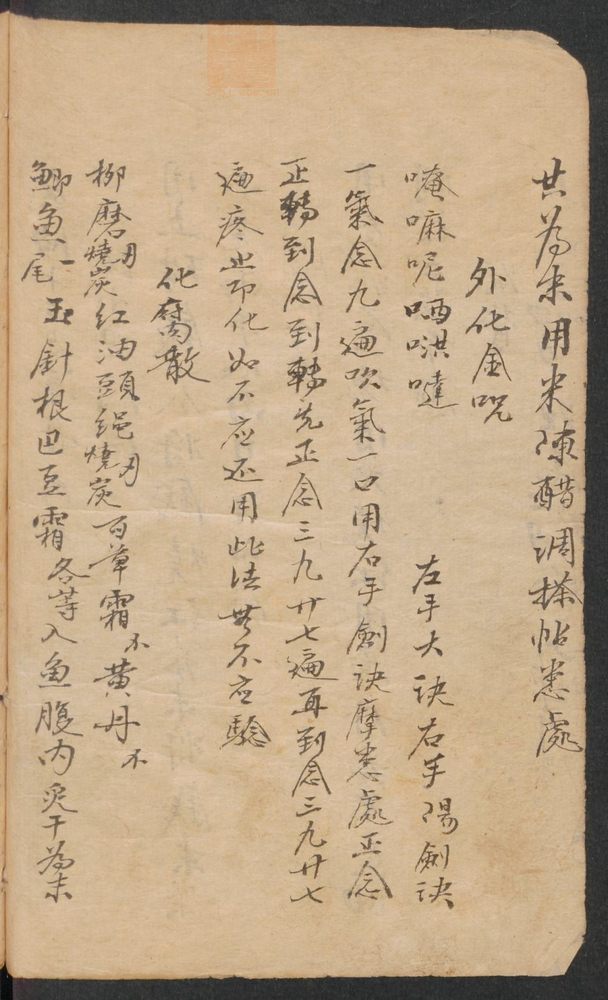 共為末用米陳醋調搽帖患處
外化金咒
唵嘛呢哂哄噠 左手大訣右手陽劍訣
一氣念九遍吹氣一口用右手劍訣摩患處正念
正轉到念到轉先正念三九廿七遍再到念三九廿七
遍疼止即化如不应还用此法無不应驗
化腐散
柳磨燒炭紅油頭繩燒炭百草霜不黃丹不
鯽魚尾一玉針根巴豆霜各等入魚腹内兌干為末